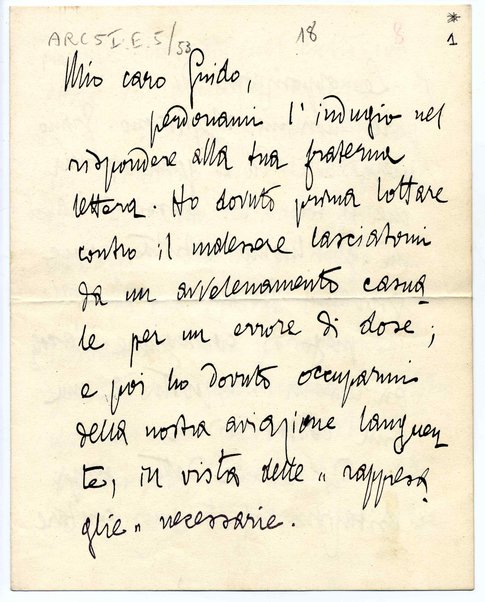 ARC5I.E.5/53 18 8 * 1
Mio caro Guido,
perdonami l'indugio nel
rispondere alla tua fraterna
lettera. Ho dovuto prima lottare
contro il malessere lasciatomi
da un avvelenamento casua
le per un errore di dose;
e poi ho dovuto occuparmi
della nostra aviazione languen
te, in vista delle „ rappresa
glie „ necessarie.